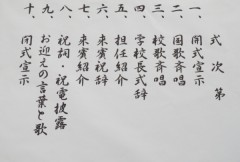 式次第
一、開式宣示
二、国歌斉唱
三、校歌斉唱
四、学校長式辞
五、担任紹介
六、来賓祝辞
七、来賓紹介
八、祝詞・祝電披露
九、お迎えの言葉と歌
十、閉式宣示